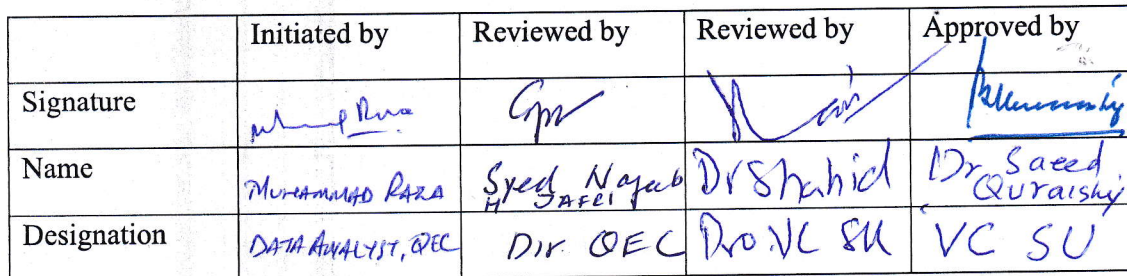 Initiated by Reviewed by Reviewed by Approved by
Signature
Name MUHAMMAD RAZA Syed Najeeb H JAFRI Dr Shahid Dr Saeed Quraishy
Designation DATA ANALYST, QEC Dir QEC Pro VC SU VC SU